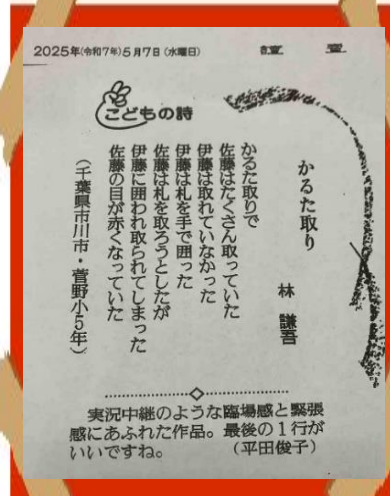 2025年(令和7年)5月7日(水曜日)
讀賣
こどもの詩
かるた取り
林 謙吾
かるた取りで
佐藤はたくさん取っていた
伊藤は取れていなかった
伊藤は札を手で囲った
佐藤は札を取ろうとしたが
伊藤に囲われ取られてしまった
佐藤の目が赤くなっていた
(千葉県市川市・菅野小5年)
実況中継のような臨場感と緊張
感にあふれた作品。最後の1行が
いいですね。 (平田俊子)